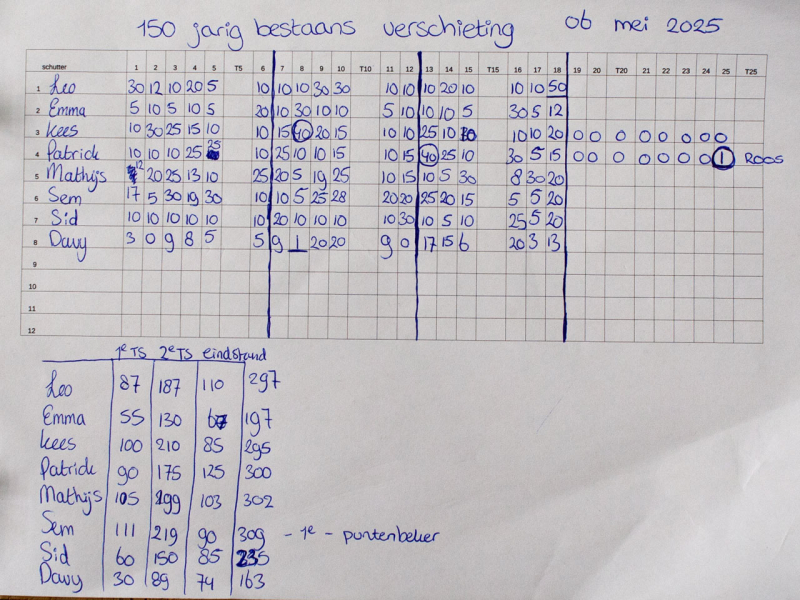 150 jarig bestaans verschieting 06 mei 2025
schutter 1 2 3 4 5 T5 6 7 8 9 10 T10 11 12 13 14 15 T15 16 17 18 19 20 T20 21 22 23 24 25 T25
1 Leo 30 12 10 20 5 10 10 10 30 30 10 10 10 20 10 10 10 50
2 Emma 5 10 5 10 5 20 10 30 10 10 5 10 10 10 5 30 5 12
3 Kees 10 30 25 15 10 10 15 40 20 15 10 10 25 10 10 10 20 0 0 0 0 0 0 0
4 Patrick 10 10 10 25 25 10 25 10 10 15 10 15 40 25 10 30 5 15 0 0 0 0 0 0 1 ROOS
5 Mathijs 12 20 25 13 10 25 20 5 19 25 10 15 10 5 30 8 30 20
6 Sem 17 5 30 19 30 10 10 5 25 28 20 20 25 20 15 5 5 20
7 Sid 10 10 10 10 10 10 20 10 10 10 10 30 10 5 10 25 5 20
8 Davy 3 0 9 8 5 5 9 1 20 20 9 0 17 15 6 20 3 13
9
10
11
12
1e TS 2e TS eindstand
Leo 87 187 110 297
Emma 55 130 67 197
Kees 100 210 85 295
Patrick 90 175 125 300
Mathijs 105 199 103 302
Sem 111 219 90 309 - 1e - puntenbeker
Sid 60 150 85 235
Davy 30 89 74 163